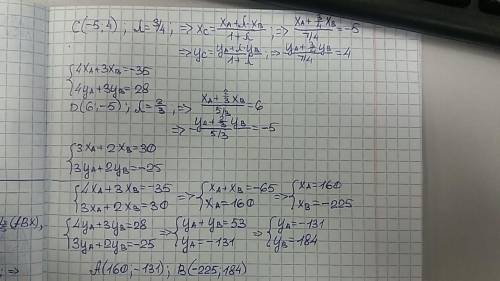 C(-5; 4), λ = 3/4, => x_C = (x_A + λ·x_B)/(1+λ), => (x_A + 3/4 x_B)/(7/4) = -5
=> y_C = (y_A + λ·y_B)/(1+λ), => (y_A + 3/4 y_B)/(7/4) = 4
{4x_A + 3x_B = -35
{4y_A + 3y_B = 28
D(6; -5), λ = 2/3, => (x_A + 2/3 x_B)/(5/3) = 6
=> (y_A + 2/3 y_B)/(5/3) = -5
{3x_A + 2x_B = 30
{3y_A + 2y_B = -25
{4x_A + 3x_B = -35 => {x_A + x_B = -65 => {x_A = 160
{3x_A + 2x_B = 30 {x_A = 160 {x_B = -225
{4y_A + 3y_B = 28 => {y_A + y_B = 53 => {y_A = -131
{3y_A + 2y_B = -25 {y_A = -131 {y_B = 184
A(160; -131); B(-225; 184)